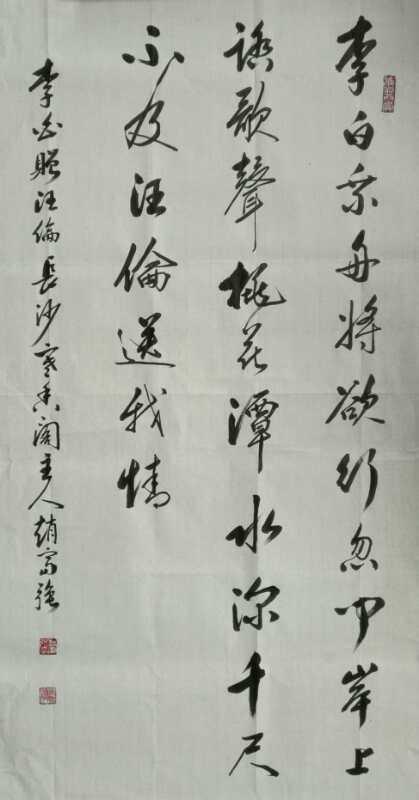 李白乘舟將欲行忽聞岸上
踏歌聲桃花潭水深千尺
不及汪倫送我情
李白贈汪倫長沙寒香閣主人趙富強